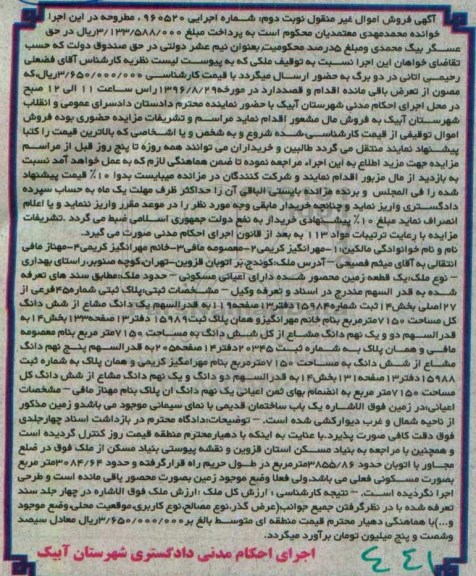 آگهی فروش اموال غیر منقول نوبت دوم؛ شماره اجرایی ۹۶۰۵۲۰ . مطروحه در این اجرا
خوانده محمدمهدی معتمدیان محکوم است به پرداخت مبلغ ۳/۱۳۳/۵۸۸/۰۰۰ریال در حق
عسگر بیگ محمدی ومبلغ ۵درصد محکومیت‌بعنوان نیم عشر دولتی در حق صندوق دولت که حسب
تقاضای خواهان این اجرا نسبت به توقیف ملکی که به پیوست لیست نظریه کارشناس آقای فضعلی
رحیمی اتانی در دو برگ به حضور ارسال میگردد با قیمت کارشناسی ۳/۶۵۰/۰۰۰/۰۰۰ریال،که
مصون از تعرض باقی مانده اقدام و قصددارد در مورخه۱۳۹۶/۸/۲۹راس ساعت ۱۱ الی ۱۲ صبح
در محل اجرای احکام مدنی شهرستان آبیک با حضور نماینده محترم دادستان دادسرای عمومی و انقلاب
شهرستان آبیک به فروش مال مشعور اقدام نماید مراسم و تشریفات مزایده حضوری بوده فروش
اموال توقیفی از قیمت کارشناسی‌شده شروع و به شخص و یا اشخاصی که بالاترین قیمت را کتبا
پیشنهاد نمایند منتقل می گردد طالبین و خریداران می توانند همه روزه تا پنج روز قبل از مراسم
مزایده جهت مزید اطلاع به این اجراء مراجعه نموده تا ضمن هماهنگی لازم که به عمل خواهد آمد نسبت
به بازدید از مال مزبور اقدام نمایند و شرکت کنندگان در مزانده میبایست بدوا ۱۰٪ قیمت پیشنهاد
شده را فی المجلس و برنده مزانده بایستی الباقی آن را حداکثر ظرف مهلت یک ماه به حساب سپرده
دادگستری واریز نماید و چنانچه خریدار مابقی وجه مورد نظر را در موعد مقرر واریز ننماید و یا اعلام
انصراف نماید مبلغ ۱۰٪ پیشنهادی خریدار به نفع دولت جمهوری اسلامی ضبط می گردد .تشریفات
مزایده با رعایت ترتیبات مواد ۱۱۳ به بعد از قانون اجرای احکام مدنی صورت می گیرد.
نام و نام خوانوادگی مالکین:۱-مهرانگیز کریمی۲-معصومه مافی۳-خانم مهرانگیز کریمی۴-مهناز مافی
انتقالی به آقای میثم فصیحی – آدرس ملک:کوندج،بر اتوبان قزوین-تهران،کوچه صنوبر،راستای بهداری
– نوع ملک:یک قطعه زمین محصور شده دارای اعیانی مسکونی – حدود ملک:مطابق سند های تعرفه
شده به قدر السهم مندرج در اسناد و تعرفه وکیل – مشخصات ثبتی:پلاک ثبتی شماره۴۵فرعی از
۲۷اصلی بخش۱۴ثبت شماره۱۵۹۸۴دفتر۱۳صفحه۱۱۹به قدرالسهم یک دانگ مشاع از شش دانگ
کل مساحت ۷۱۵۰مترمربع بنام خانم مهرانگیزو همان پلاک ثبت۱۵۹۸۹دفتر۱۳صفحه۱۳۳بخش۱۴به
قدرالسهم دو و یک نهم دانگ مشاع از کل شش دانگ به مساحت ۷۱۵۰متر مربع بنام معصومه
مافی و همان پلاک به شماره ثبت ۲۰۳۴۵دفتر۱۴صفحه۲۰۵به قدرالسهم پنج نهم دانگ
مشاع از شش دانگ به مساحت ۷۱۵۰مترمربع بنام مهرامگیز کریمی و همان پلاک به شماره ثبت
۱۵۹۸۸دفتر۱۳صفحه۱۳۱بخش۱۴به قدرالسهم دو دانگ و یک نهم دانگ مشاع از شش دانگ کل
مساحت ۷۱۵۰متر مربع به انضمام بهای ثمن اعیانی یک نهم دانگ ان پلاک بنام مهناز مافی – مشخصات
اعیانی:در زمین فوق الاشاره یک باب ساختمان قدیمی با نمای سیمانی موجود می باشدو زمین مذکور
از ناحیه شمال و غرب دیوارکشی شده است. – توضیحات:دادگاه محترم در بازداشت اسناد چهارجلدی
فوق دقت کافی صورت پذیرد.با عنایت به اینکه با دهیارمحترم منطقه قیمت روز کنترل گردیده است
و همچنین با مراجعه به بنیاد مسکن استان قزوین و نقشه پیوستی بنیاد مسکن از ملک فوق در ضلع
مجاور با اتوبان حدود ۳۸۵۵/۸۶مترمربع در طول حریم راه قرارگرفته و حدود ۳۰۸۴/۶۴متر مربع
بصورت مسکونی فعلی می باشد،ولی فعلا وضع موجود زمین بصورت محصور باقی مانده است و طرحی
اجرا نگردیده است. – نتیجه کارشناسی : ارزش کل ملک :ارزش ملک فوق الاشاره در چهار جلد سند
تعرفه شده با در نظرگرفتن جمیع جوانب(عرض گذر،نوع مصالح،نوع کاربری،موقعیت محلی،وضع موجود
و...)با هماهنگی دهیار محترم قیمت منطقه ای متوسط بالغ بر۳/۶۵۰/۰۰۰/۰۰۰ریال معادل سیصد
وشصت و پنج میلیون تومان برآورد میگردد.
اجرای احکام مدنی دادگستری شهرستان آبیک